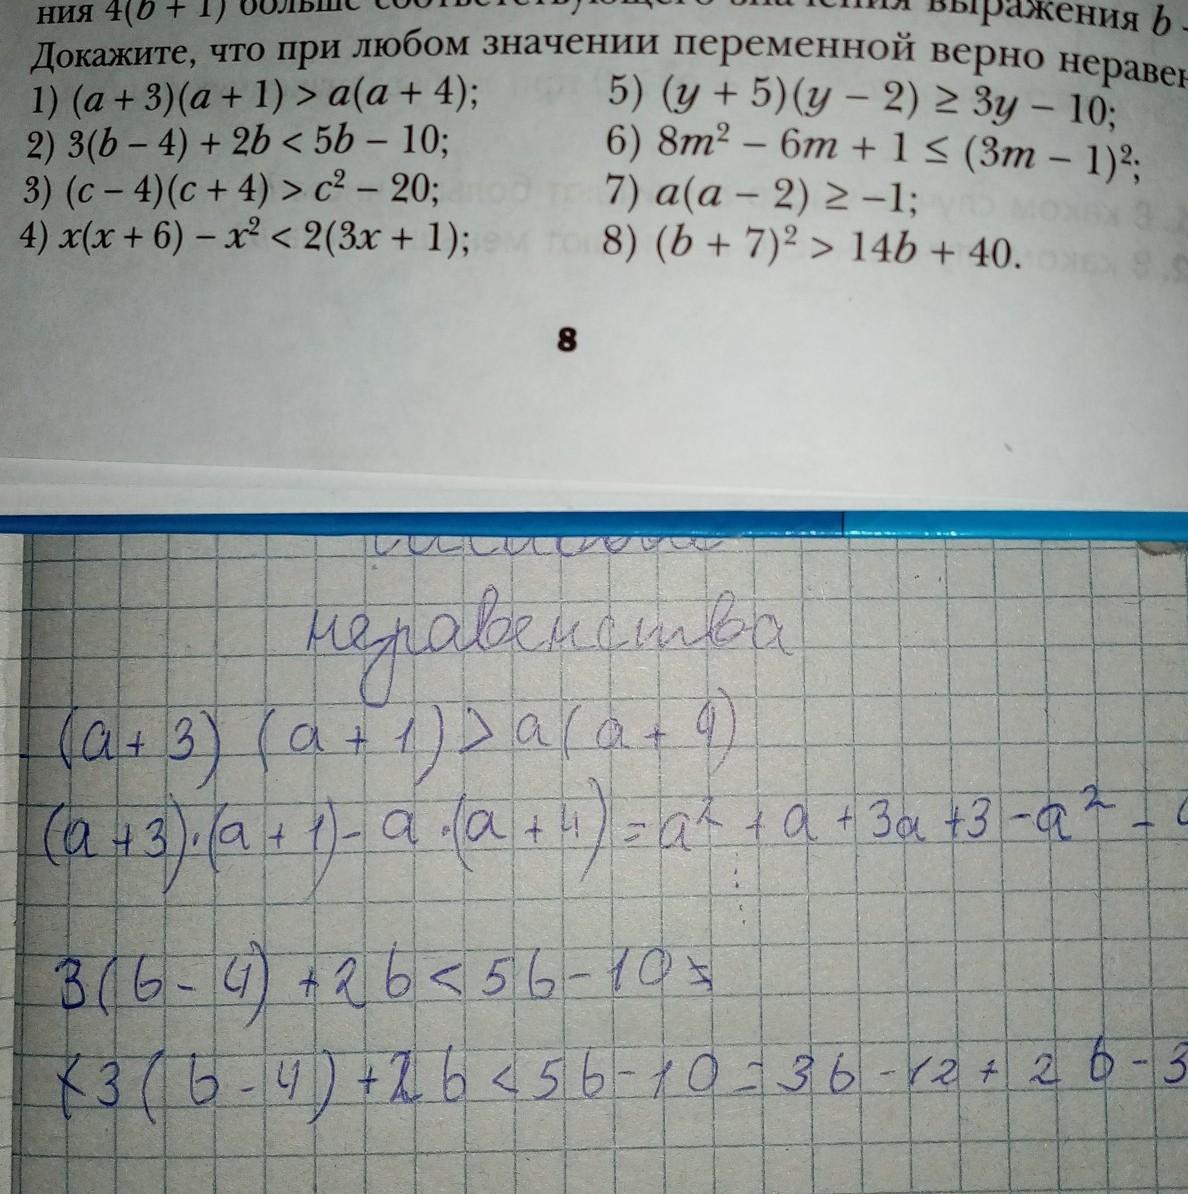 ния 4(b + 1) больше соответствующего значения выражения b
Докажите, что при любом значении переменной верно неравен
1) (a + 3)(a + 1) > a(a + 4);
2) 3(b − 4) + 2b < 5b − 10;
3) (c − 4)(c + 4) > c² − 20;
4) x(x + 6) − x² < 2(3x + 1);
5) (y + 5)(y − 2) ≥ 3y − 10;
6) 8m² − 6m + 1 ≤ (3m − 1)²;
7) a(a − 2) ≥ −1;
8) (b + 7)² > 14b + 40.
8
неравенства
(a + 3) (a + 1) > a(a + 4)
(a + 3)·(a + 1) − a·(a + 4) = a² + a + 3a + 3 − a² −
3(b − 4) + 2b < 5b − 10
3(b − 4) + 2b < 5b − 10 = 3b − 12 + 2b − 3